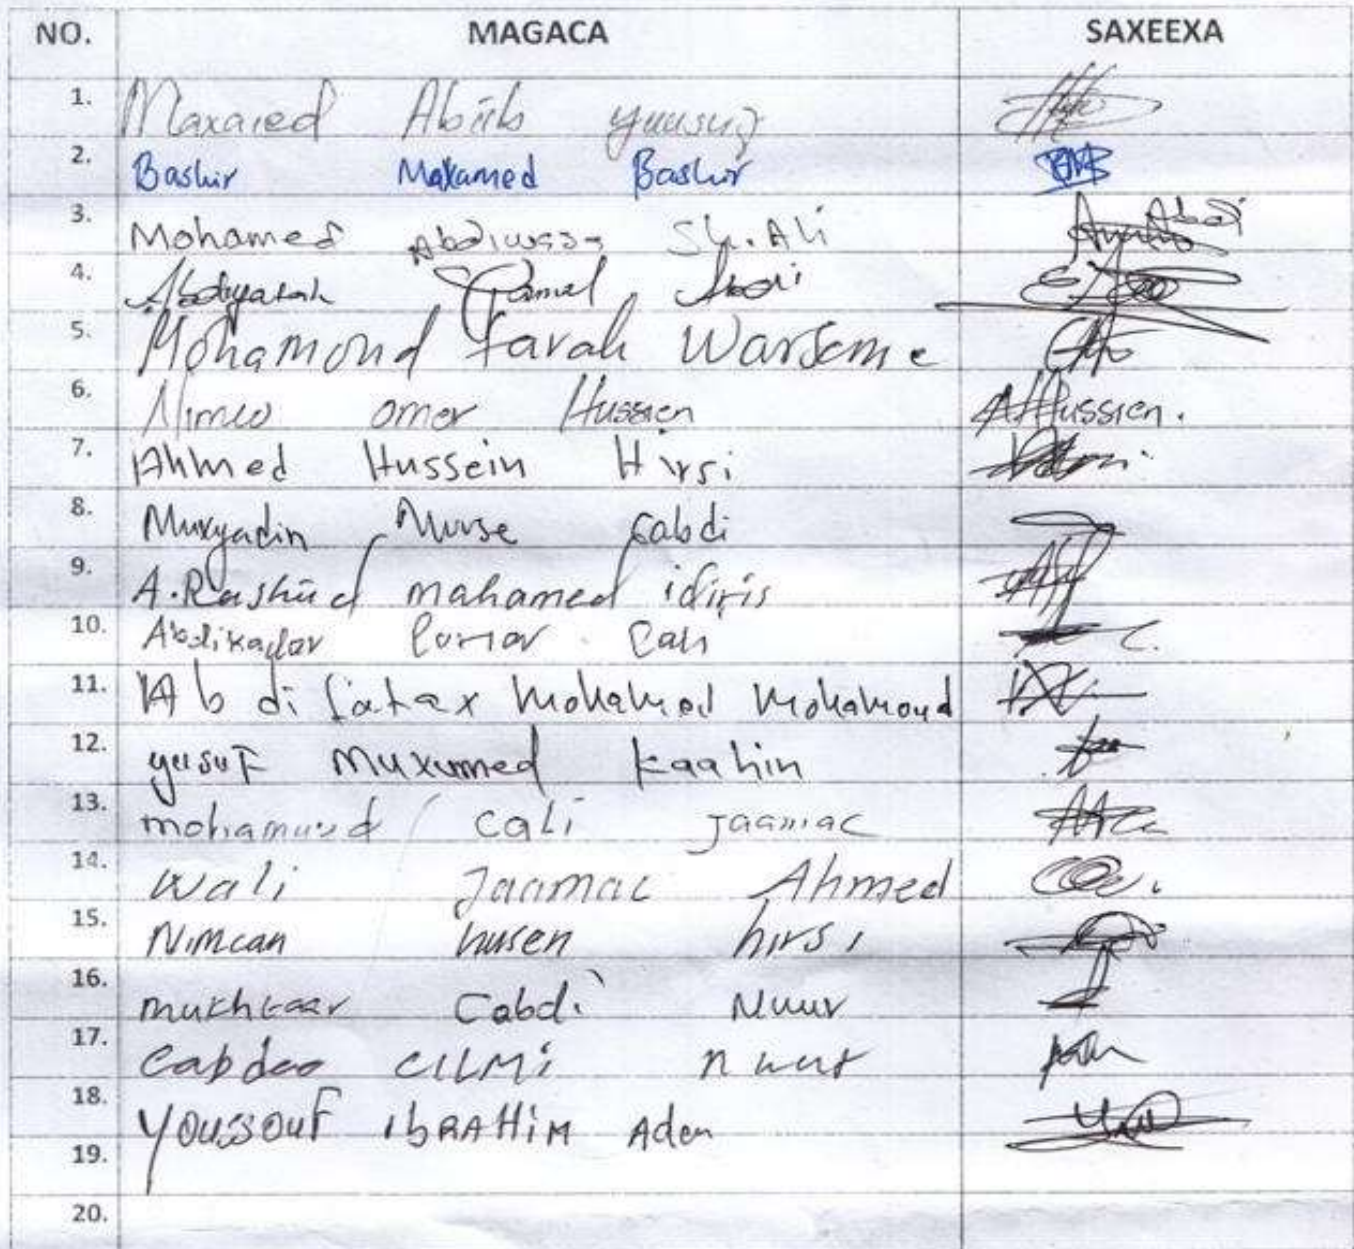 NO. MAGACA SAXEEXA
1. Maxamed Abiib yuusuf
2. Bashir Maxamed Bashir BMB
3. Mohamed Sh. Ali Abdi
4. Jamal Abdi
5. Mohamoud Farah Warsame
6. Nimco omer Hussien AHussien.
7. Ahmed Hussein Hirsi
8. Muxyadin Muse Cabdi
9. A.Rashiid mahamed idiris
10. Abdikader Cumar Cali
11. Abdifatax Mohamed Mohamoud
12. yusuf Muxumed Kaahin
13. mohamuud Cali Jaamac
14. Wali Jaamac Ahmed
15. Nimcan husen hirsi
16. mukhtaar Cabdi Nuur
17. Cabdoo CILMi nuur
18. YOUSSOUF IbRAHiM Aden
19.
20.